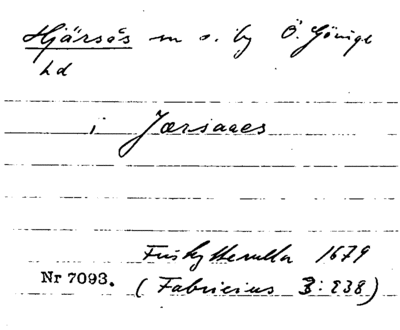 Hjärsås sn o. by Ö. Göinge
hd
i Jærsaaes
Friskytterulla 1679
Nr 7093. (Fabricius 3:238)